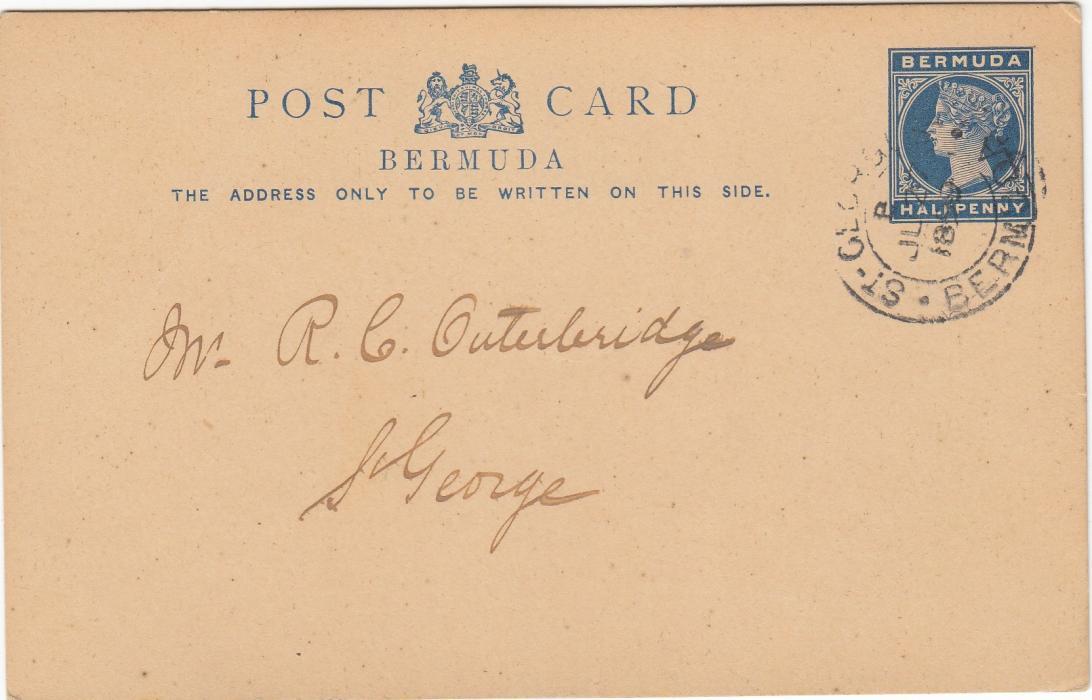 POST CARD
BERMUDA
THE ADDRESS ONLY TO BE WRITTEN ON THIS SIDE.
BERMUDA
HALFPENNY
ST. GEORGE
BERMUDA
JU
Mr R. C. Outerbridge
St George